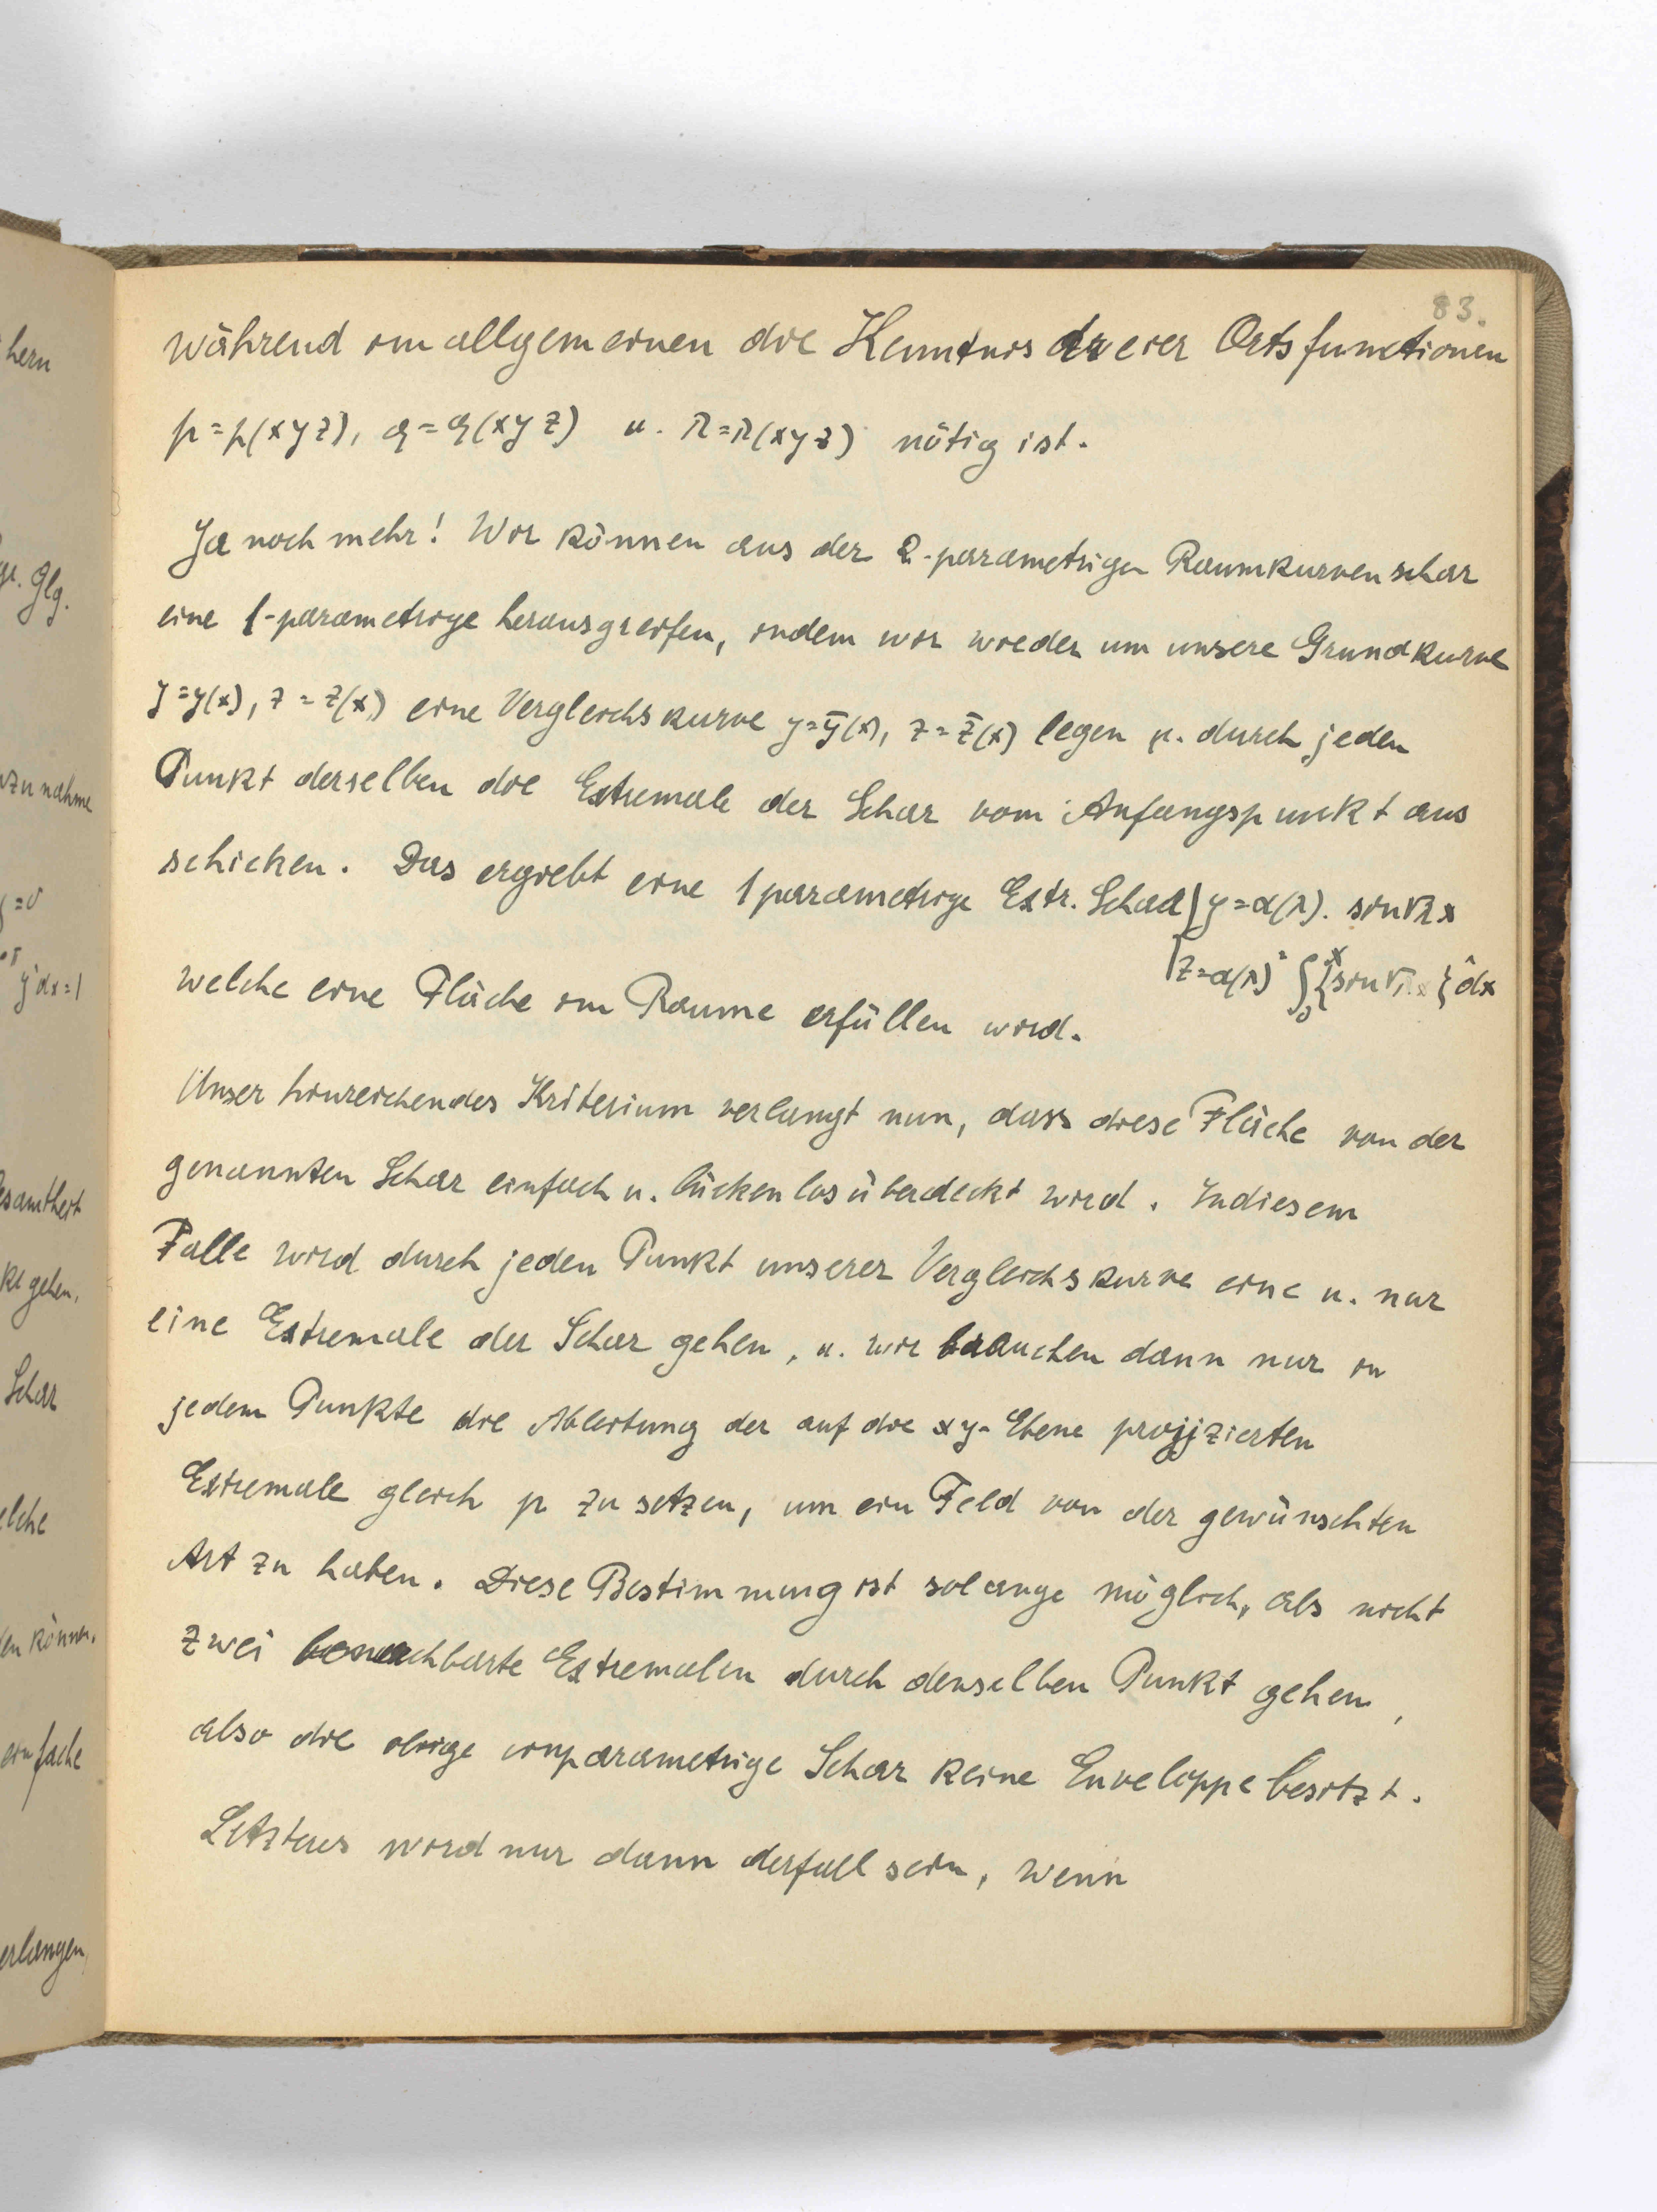 hern
gr. Glg.
zunahme
=0
y²dx=1
esamtheit
kt gehen,
Schar
elche
en können,
einfache
erlangen,
83.
während im allgemeinen die Kenntnis dreier Ortsfunctionen
p=p(xyz), q=q(xyz) u. r=r(xyz) nötig ist.
Ja noch mehr! Wir können aus der 2-parametrigen Raumkurvenschar
eine 1-parametrige herausgreifen, indem wir wieder um unsere Grundkurve
y=y(x), z=z(x) eine Vergleichskurve y=ȳ(x), z=z̄(x) legen u. durch jeden
Punkt derselben die Extremale der Schar vom Anfangspunkt aus
schicken. Das ergiebt eine 1parametrige Extr. Schar { y=α(λ). sin√λ x
z=α(λ)² ∫₀ˣ{sin√λ x}²dx
welche eine Fläche im Raume erfüllen wird.
Unser hinreichendes Kriterium verlangt nun, dass diese Fläche von der
genannten Schar einfach u. lückenlos überdeckt wird. In diesem
Falle wird durch jeden Punkt unserer Vergleichskurve eine u. nur
eine Extremale der Schar gehen, u. wir brauchen dann nur in
jedem Punkte die Ableitung der auf die xy-Ebene projizierten
Extremale gleich p zu setzen, um ein Feld von der gewünschten
Art zu haben. Diese Bestimmung ist solange möglich, als nicht
zwei benachbarte Extremalen durch denselben Punkt gehen,
also die obige einparametrige Schar keine Enveloppe besitzt.
Letzteres wird nur dann der fall sein, wenn